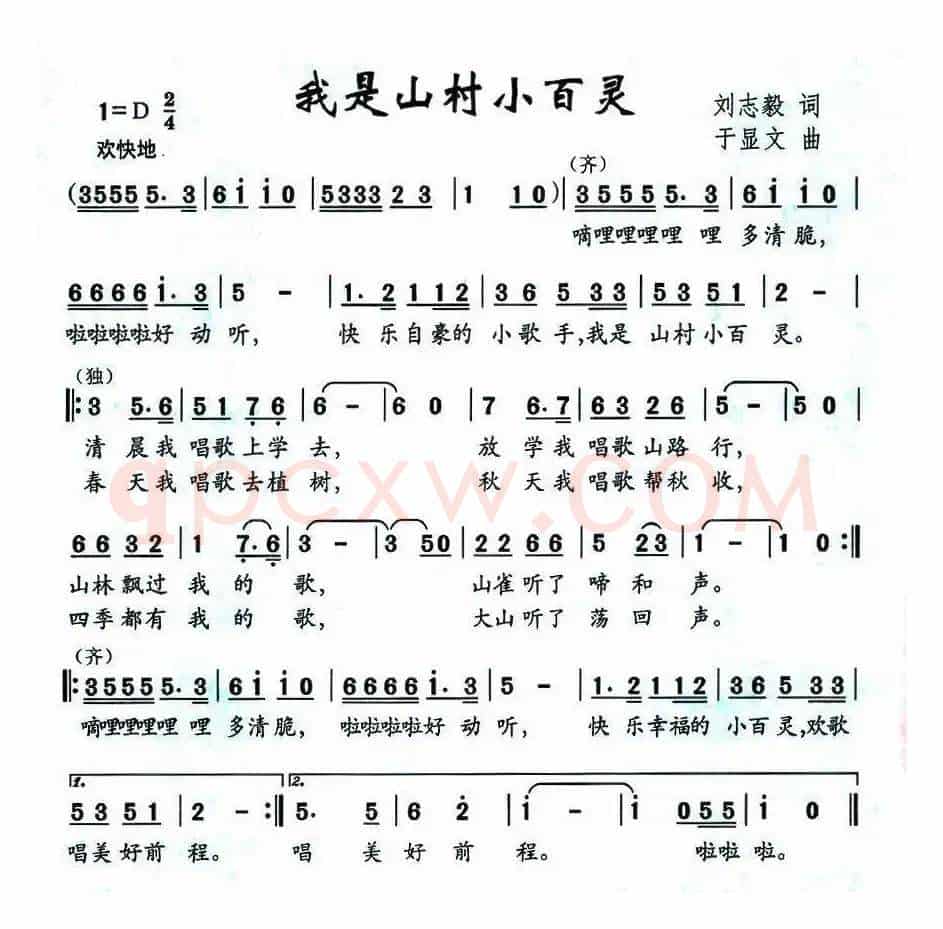 我是山村小百灵
1=D 2/4
刘志毅 词
欢快地
于显文 曲
(齐)
(3555 5. 3 | 6 i i 0 | 5333 2 3 | 1 1 0) | 3555 5. 3 | 6 i i 0 |
嘀哩哩哩哩 哩 多清脆,
6666 i. 3 | 5 - | 1. 2 1 12 | 3 6 5 33 | 5 3 5 1 | 2 - |
啦啦啦啦好 动听, 快 乐自豪的 小歌 手,我是 山村小百 灵。
(独)
‖: 3 5. 6 | 5 1 7 6 | 6 - | 6 0 | 7 6. 7 | 6 3 2 6 | 5 - | 5 0 |
清 晨我 唱歌上学 去, 放 学我 唱歌山路 行,
春 天我 唱歌去植 树, 秋 天我 唱歌帮秋 收,
qpcxw.com
6 6 3 2 | 1 7. 6 | 3 - | 3 50 | 2 2 6 6 | 5 23 | 1 - | 1 0 :‖
山林飘过 我 的 歌, 山雀听了 啼 和 声。
四季都有 我 的 歌, 大山听了 荡 回 声。
(齐)
‖: 3555 5. 3 | 6 i i 0 | 6666 i. 3 | 5 - | 1. 2 1 12 | 3 6 5 33 |
嘀哩哩哩哩 哩 多清脆, 啦啦啦啦好 动听, 快 乐幸福的 小百 灵,欢歌
1. 2.
5 3 5 1 | 2 - :‖ 5. 5 | 6 2 | i - | i 055 | i 0 ‖
唱美好前 程。 唱 美 好 前 程。 啦啦 啦。